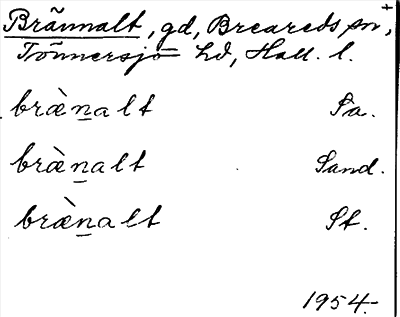 Brännalt, gd, Breareds sn,
Tönnersjö hd, Hall. l.
bræ̀n̲alt Sa.
bræ̀n̲alt Sand.
bræ̀n̲alt St.
1954.